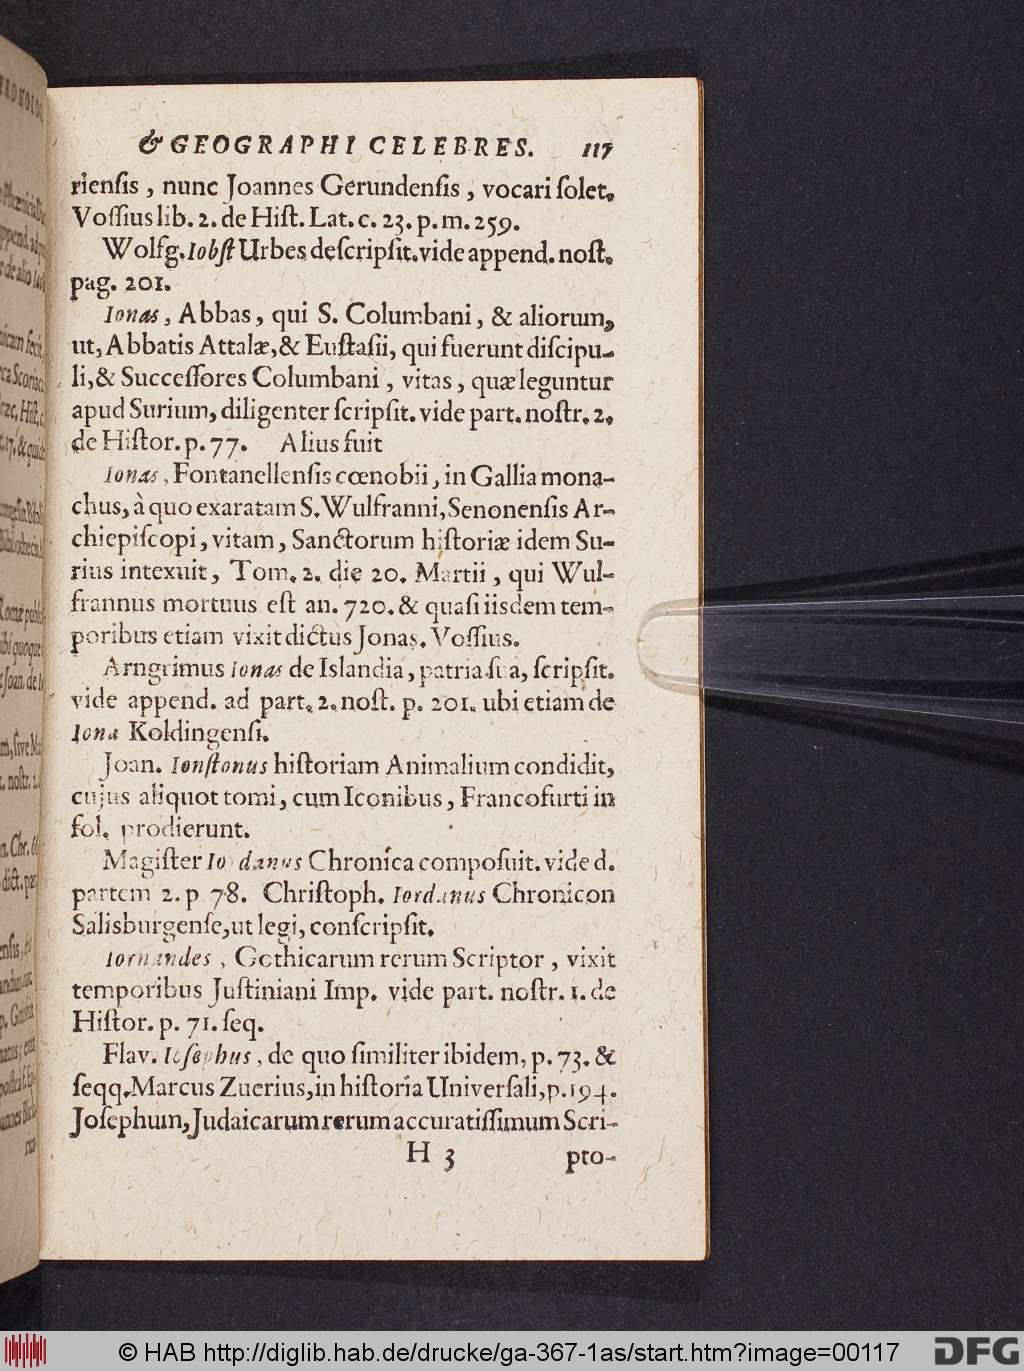 & GEOGRAPHI CELEBRES. 117
rienſis, nunc Joannes Gerundenſis, vocari ſolet.
Voſſius lib. 2. de Hiſt. Lat. c. 23. p. m. 259.
Wolfg. Iobſt Urbes deſcripſit. vide append. noſt.
pag. 201.
Ionas, Abbas, qui S. Columbani, & aliorum,
ut, Abbatis Attalæ, & Euſtaſii, qui fuerunt diſcipu-
li, & Succeſſores Columbani, vitas, quæ leguntur
apud Surium, diligenter ſcripſit. vide part. noſtr. 2.
de Hiſtor. p. 77. Alius fuit
Ionas, Fontanellenſis cœnobii, in Gallia mona-
chus, à quo exaratam S. Wulfranni, Senonenſis Ar-
chiepiſcopi, vitam, Sanctorum hiſtoriæ idem Su-
rius intexuit, Tom. 2. die 20. Martii, qui Wul-
frannus mortuus eſt an. 720. & quaſi iisdem tem-
poribus etiam vixit dictus Jonas. Voſſius.
Arngrimus Ionas de Islandia, patria ſua, ſcripſit.
vide append. ad part. 2. noſt. p. 201. ubi etiam de
Iona Koldingenſi.
Joan. Ionſtonus hiſtoriam Animalium condidit,
cujus aliquot tomi, cum Iconibus, Francofurti in
fol. prodierunt.
Magiſter Iordanus Chronica compoſuit. vide d.
partem 2. p 78. Chriſtoph. Iordanus Chronicon
Salisburgenſe, ut legi, conſcripſit.
Iornandes, Gothicarum rerum Scriptor, vixit
temporibus Juſtiniani Imp. vide part. noſtr. 1. de
Hiſtor. p. 71. ſeq.
Flav. Ioſephus, de quo ſimiliter ibidem, p. 73. &
ſeqq. Marcus Zuerius, in hiſtoria Univerſali, p. 194.
Joſephum, Judaicarum rerum accuratiſſimum Scri-
H 3 pto-
© HAB http://diglib.hab.de/drucke/ga-367-1as/start.htm?image=00117
DFG